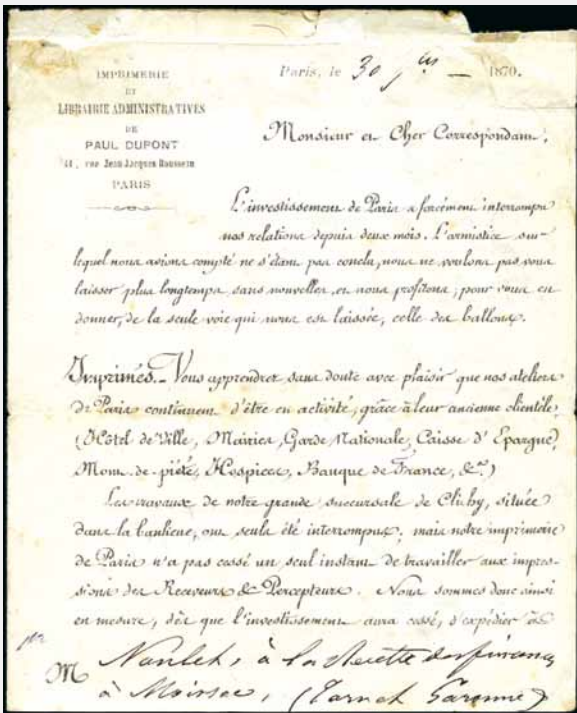 IMPRIMERIE
ET
LIBRAIRIE ADMINISTRATIVES
DE
PAUL DUPONT
41, rue Jean-Jacques Rousseau
PARIS
Paris, le 30 9bre 1870.
Monsieur et Cher Correspondant,
L'investissement de Paris a forcément interrompu
nos relations depuis deux mois. L'armistice sur
lequel nous avions compté ne s'étant pas conclu, nous ne voulons pas vous
laisser plus longtemps sans nouvelles, et nous profitons, pour vous en
donner, de la seule voie qui nous est laissée, celle des ballons.
Imprimés.- Vous apprendrez sans doute avec plaisir que nos ateliers
de Paris continuent d'être en activité, grâce à leur ancienne clientèle
(Hôtel de Ville, Mairies, Garde Nationale, Caisse d'Epargne,
Mont-de-piété, Hospices, Banque de France, &a.)
Les travaux de notre grande succursale de Clichy, située
dans la banlieue, ont seuls été interrompus; mais notre imprimerie
de Paris n'a pas cessé un seul instant de travailler aux impres-
sions des Receveurs & Percepteurs. Nous sommes donc ainsi
en mesure, dès que l'investissement aura cessé, d'expédier à
M Nanlet, à la Recette des finances
à Moissac, (Tarn et Garonne)